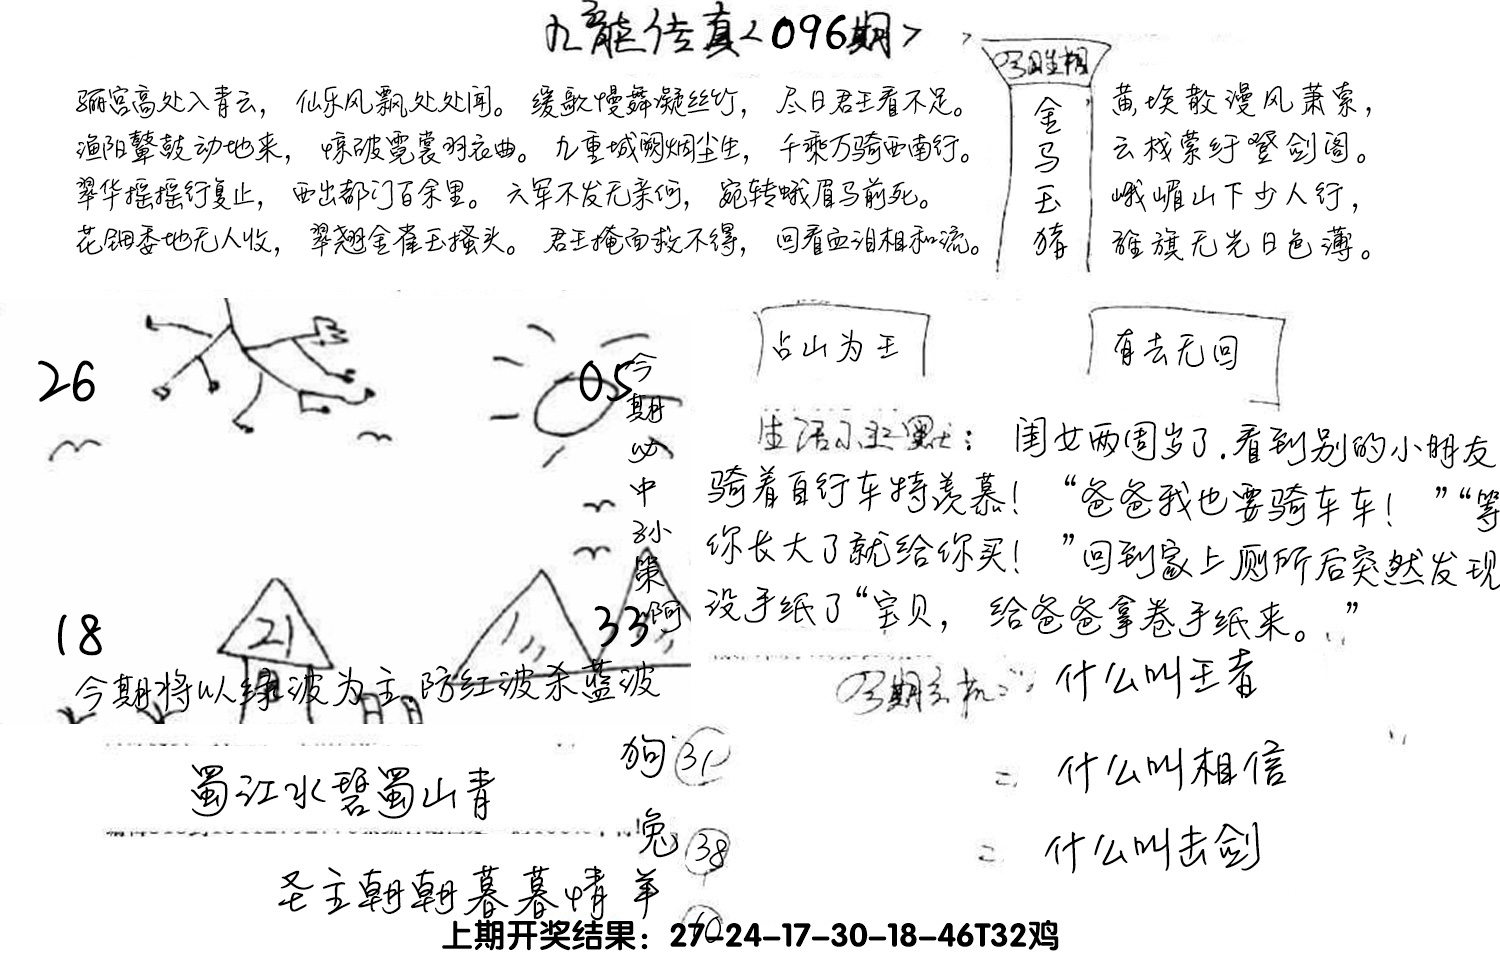 九龙传真<096期>
骊宫高处入青云，仙乐风飘处处闻。缓歌慢舞凝丝竹，尽日君王看不足。
渔阳鼙鼓动地来，惊破霓裳羽衣曲。九重城阙烟尘生，千乘万骑西南行。
翠华摇摇行复止，西出都门百余里。六军不发无奈何，宛转蛾眉马前死。
花钿委地无人收，翠翘金雀玉搔头。君王掩面救不得，回看血泪相和流。
金
马
玉
猪
黄埃散漫风萧索，
云栈萦纡登剑阁。
峨嵋山下少人行，
旌旗无光日色薄。
26
05
18
21
33
今期必中孙策啊
今期将以绿波为主.防红波杀蓝波
占山为王
有去无回
生活小幽默：闺女两周岁了.看到别的小朋友
骑着自行车特羡慕！“爸爸我也要骑车车！”“等
你长大了就给你买！”回到家上厕所后突然发现
没手纸了“宝贝，给爸爸拿卷手纸来。”
今期玄机：什么叫王者
= 什么叫相信
= 什么叫击剑
蜀江水碧蜀山青
圣主朝朝暮暮情
狗 31
兔 38
羊 10
上期开奖结果：27-24-17-30-18-46T32鸡